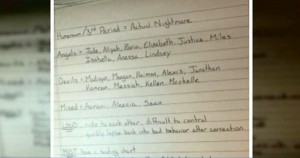 Homeroom / 3rd Period = Actual Nightmare
Angels = Jade, Aliyah, Elizabeth, Justice, Miles
Isabella, Anessa, Lindsey
Devils = Madisyn, Meagan, Alexis, Jonathan
Messiah, Kellen
Mixed = Alexia, Sean
rude to each other, difficult to control
quickly lapse back into bad behavior after correction.
have a seating chart